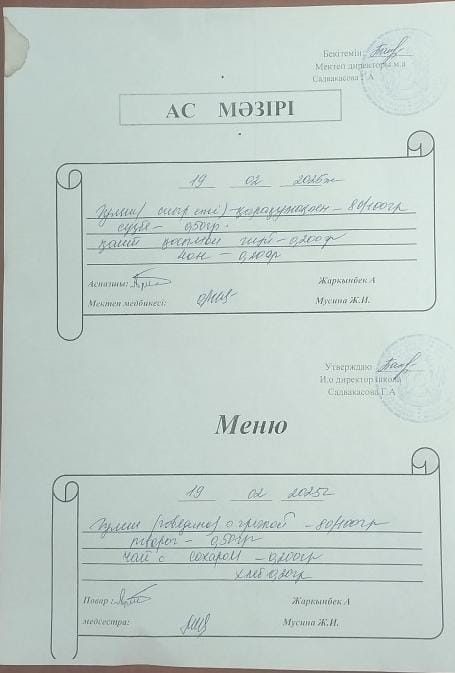 Бекітемін
Мектеп директоры м.а
Садвакасова Г.А
АС МӘЗІРІ
19 02 2025ж
Гуляш (сиыр еті) - қарақұмықпен - 80/100гр
сүзбе - 0,50гр.
қант қосылған шай - 0,200гр
нан - 0,20гр
Аспазшы: Жаркынбек А
Мектеп медбикесі: Мусина Ж.И.
Утверждаю
И.о директор школа
Садвакасова Г.А
Меню
19 02 2025г
Гуляш (говядина) с гречкой - 80/100гр
творог - 0,50гр
чай с сахаром - 0,200гр
хлеб 0,20гр
Повар: Жаркынбек А
медсестра: Мусина Ж.И.